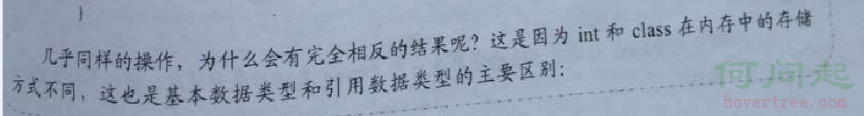 }
几乎同样的操作，为什么会有完全相反的结果呢？这是因为 int 和 class 在内存中的存储
方式不同，这也是基本数据类型和引用数据类型的主要区别：
何问起
hovertree.com